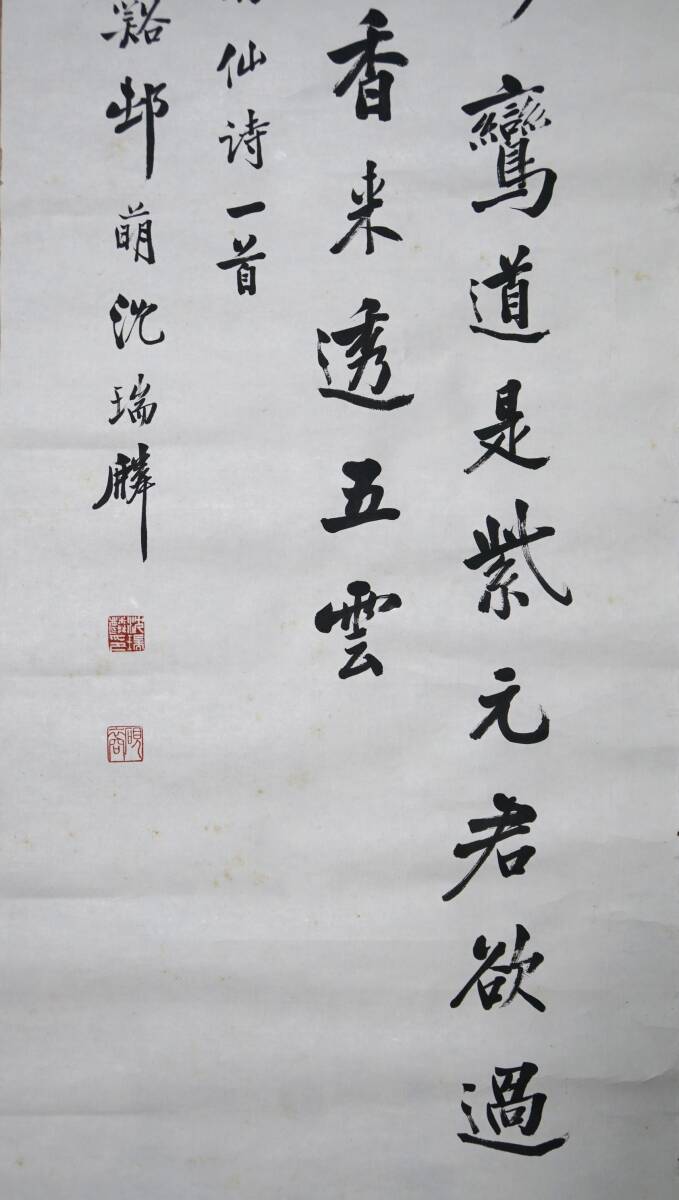 鸞道是紫元君欲過
香来透五雲
仙诗一首
谿邨萌沈瑞麟
沈瑞麟印